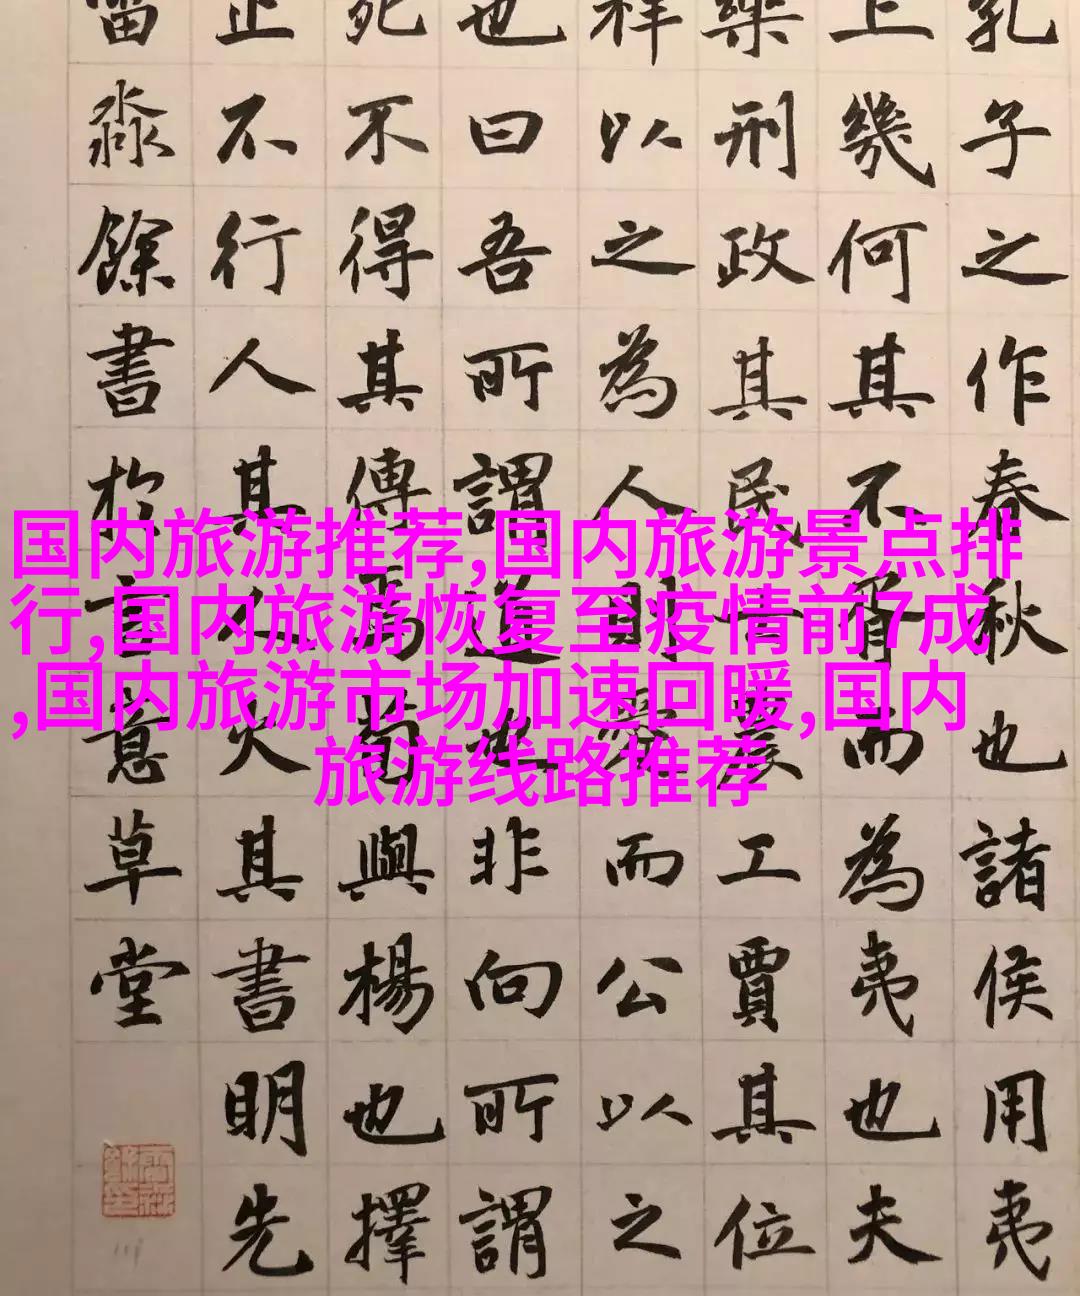 国内旅游推荐,国内旅游景点排
行,国内旅游恢复至疫情前7成
,国内旅游市场加速回暖,国内
旅游线路推荐
孔子之作春秋也諸侯用夷
上幾何其不胥而為夷也夫
樂刑政其民士農工賈其位
祥以之為人則愛而公以之
也曰吾所謂道也非向所謂
死不得其傳焉荀與楊也擇
止不行人其人火其書明先
淼餘書於言意草堂